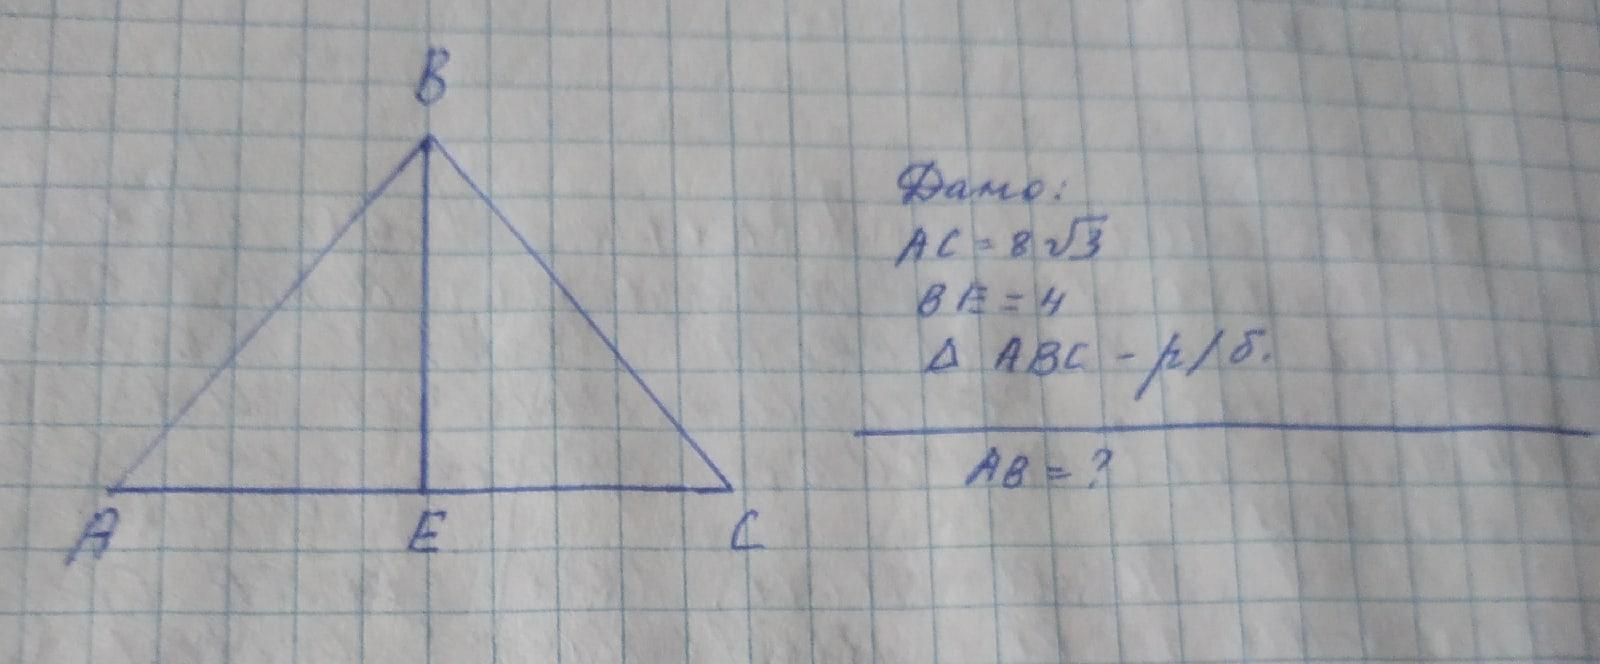 B
A E C
Дано:
AC = 8√3
BE = 4
Δ ABC - р/б.
AB = ?